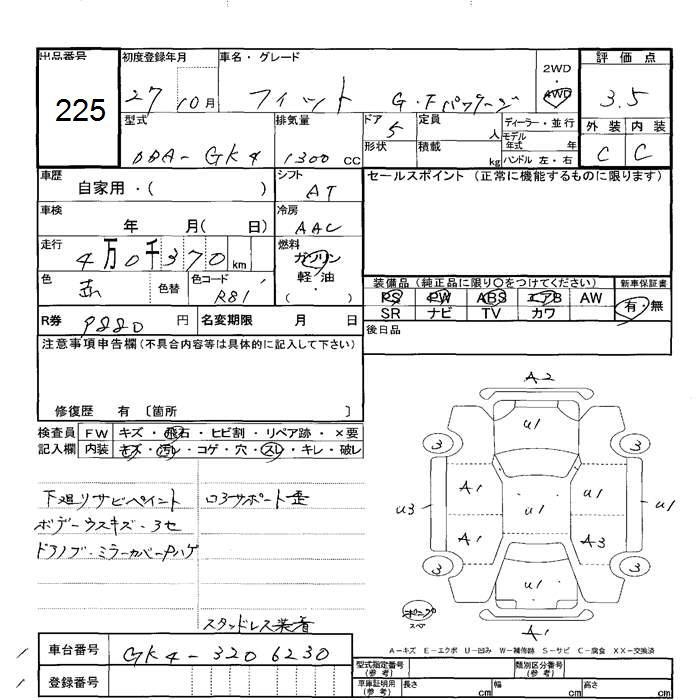 出品番号 初度登録年月 車名・グレード 2WD・AWD 評価点
225 27 10月 フィット G・Fパッケージ 3.5
型式 排気量 ドア 5 定員 人 ディーラー・並行 外装 内装
DBA-GK4 1300 cc 形状 積載 kg モデル年式 年 C C
ハンドル 左・右
車歴 自家用・( ) シフト AT セールスポイント (正常に機能するものに限ります)
車検 年 月( 日) 冷房 AAC
走行 4万0千370 km 燃料 ガソリン 軽・油 ( )
色 赤 色替 色コード R81
装備品 (純正品に限り〇をつけてください) 新車保証書
PS PW ABS エアB AW 有・無
SR ナビ TV カワ
R券 9880 円 名変期限 月 日 後日品
注意事項申告欄 (不具合内容等は具体的に記入して下さい)
修復歴 有 〔箇所 〕
検査員記入欄 FW キズ・飛石・ヒビ割・リペア跡・×要
内装 キズ・汚レ・コゲ・穴・スレ・キレ・破レ
下廻リサビペイント コアサポート歪
ボデーウスキズ・ヨセ
ドアノブ・ミラーカバーPハゲ
スタッドレス装着
A2
U1
3 3
A1 U1
U3 U1 U1
A1 A3
3 3
U1
A1
スペア
A-キズ E-エクボ U-凹み W-補修跡 S-サビ C-腐食 XX-交換済
車台番号 GK4-3206230
登録番号
型式指定番号 (参考) 類別区分番号 (参考)
車庫証明用 (参考) 長さ cm 幅 cm 高さ cm